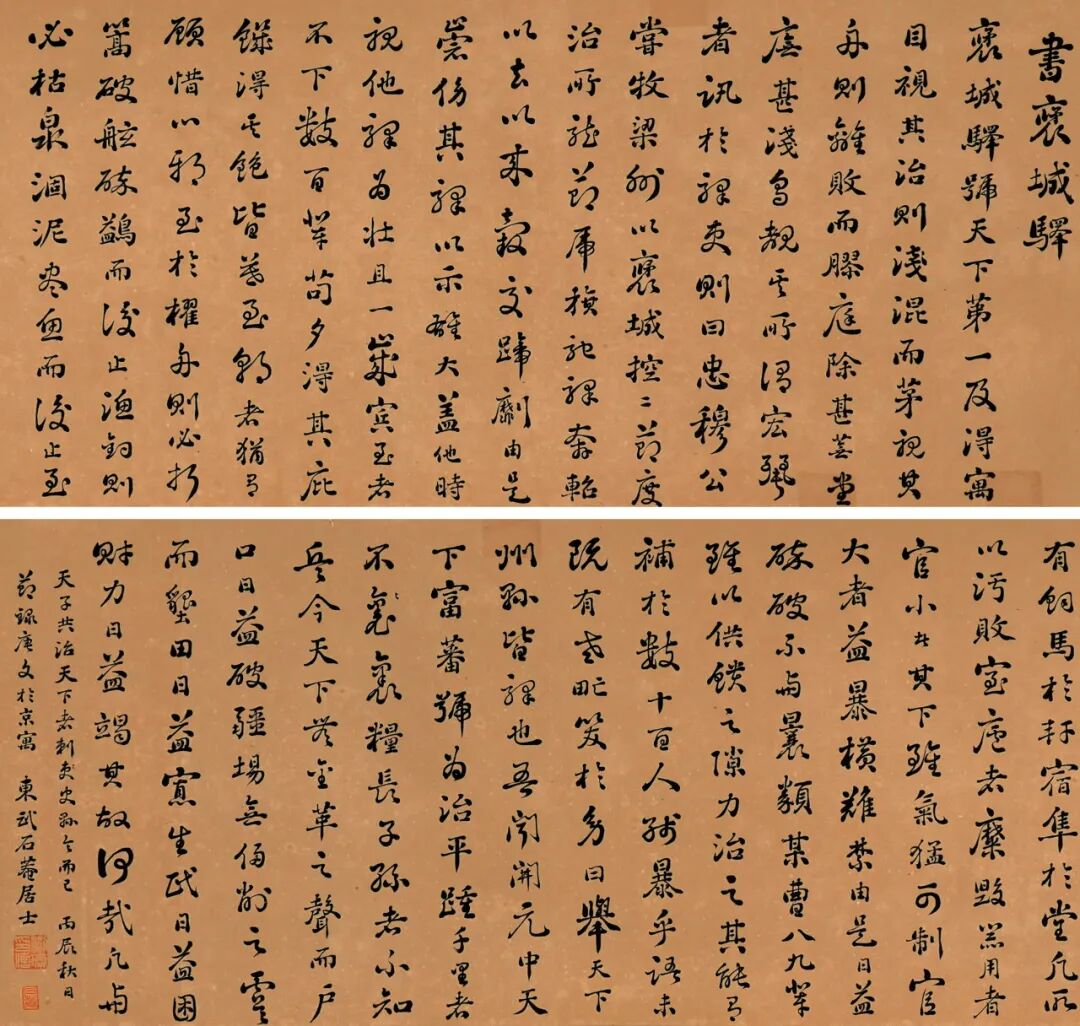 書褒城驛
褒城驛號天下第一及得寓
目視其治則淺混而茅視其
舟則離敗而膠庭除甚蕪堂
廡甚淺烏覩其所謂宏麗
者訊於驛吏則曰忠穆公
嘗牧梁州以褒城控二節度
治所龍節虎旗馳驛奔軺
以去以來轂交蹄劘由是
崇侈其驛以示雄大蓋他時
視他驛為壯且一歲賓至者
不下數百輩苟夕得其庇
饑得其飽皆暮至朝者猶有
顧惜心耶至於櫂舟則必折
篙破舷碎鷁而後止漁釣則
必枯泉涸泥盡魚而後止至
有飼馬於軒宿隼於堂凡所
以污敗室廬者糜毀器用者
官小者其下雖氣猛可制官
大者益暴橫難禁由是日益
碎破不與曩類某曹八九輩
雖以供饋之隙力治之其能有
補於數十百人殘暴乎語未
既有老甿笑於旁曰舉天下
州縣皆驛也吾聞開元中天
下富蕃號為治平踵千里者
不裹糧長子孫者不知
兵今天下無金革之聲而戶
口日益破疆場無侵削之虞
而墾田日益寡生民日益困
財力日益竭其故何哉凡與
天子共治天下者刺史縣令而已 丙辰秋日
節錄唐文於京寓 東武石菴居士